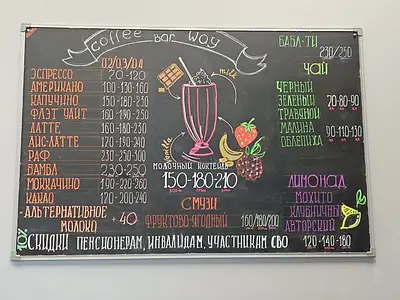 Coffee Bar Way
02/03/04
ЭСПРЕССО 70-120
АМЕРИКАНО 100-130-160
КАПУЧИНО 150-180-230
ФЛЭТ УАЙТ 160-190-250
ЛАТТЕ 160-180-230
АЙС-ЛАТТЕ 170-190-240
РАФ 230-250-300
БАМБЛ 230-250
МОККАЧИНО 190-220-260
КАКАО 120-200-240
-АЛЬТЕРНАТИВНОЕ МОЛОКО +40
milk
МОЛОЧНЫЙ КОКТЕЙЛЬ
150-180-210
СМУЗИ
ФРУКТОВО-ЯГОДНЫЙ 160/180/200
БАБЛ-ТИ
230/250
ЧАЙ
ЧЕРНЫЙ
ЗЕЛЕНЫЙ 70-80-90
ТРАВЯНОЙ
МАЛИНА 90-110-130
ОБЛЕПИХА
ЛИМОНАД
МОХИТО
КЛУБНИЧНЫЙ
АВТОРСКИЙ
120-140-160
10% СКИДКИ ПЕНСИОНЕРАМ, ИНВАЛИДАМ, УЧАСТНИКАМ СВО